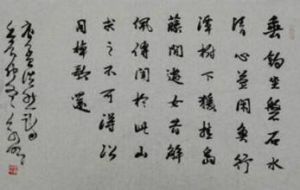 垂釣坐磐石水
清心益閒魚行
潭樹下猿挂島
藤間遊女昔解
佩傳聞於此山
求之不可得沿
月棹歌還